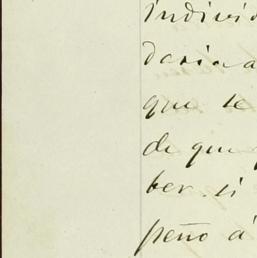 individ
daria a
que te
de que
ber. si
peño á